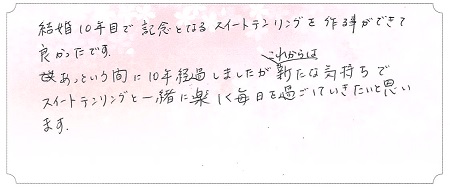 結婚10年目で記念となるスイートテンリングを作る事ができて
良かったです。
あっという間に10年経過しましたがこれからは新たな気持ちで
スイートテンリングと一緒に楽しく毎日を過ごしていきたいと思い
ます。